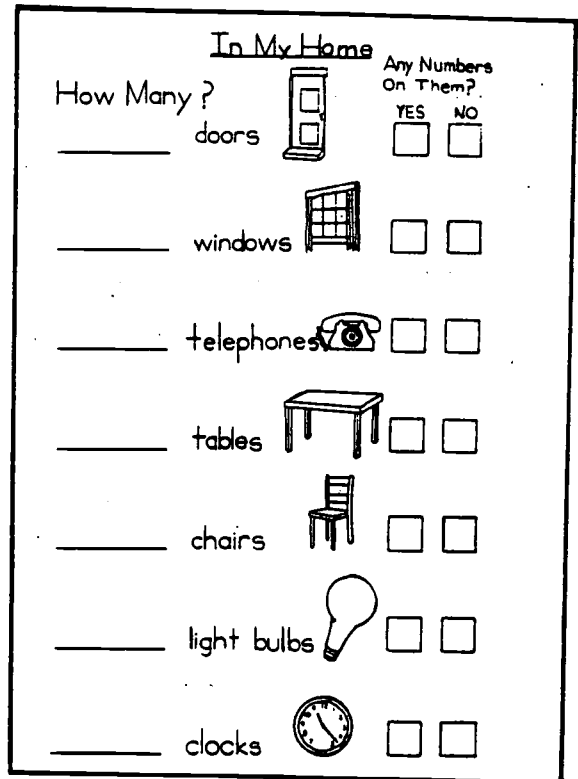 In My Home
How Many?
Any Numbers
On Them?
YES NO
doors
windows
telephones
tables
chairs
light bulbs
clocks